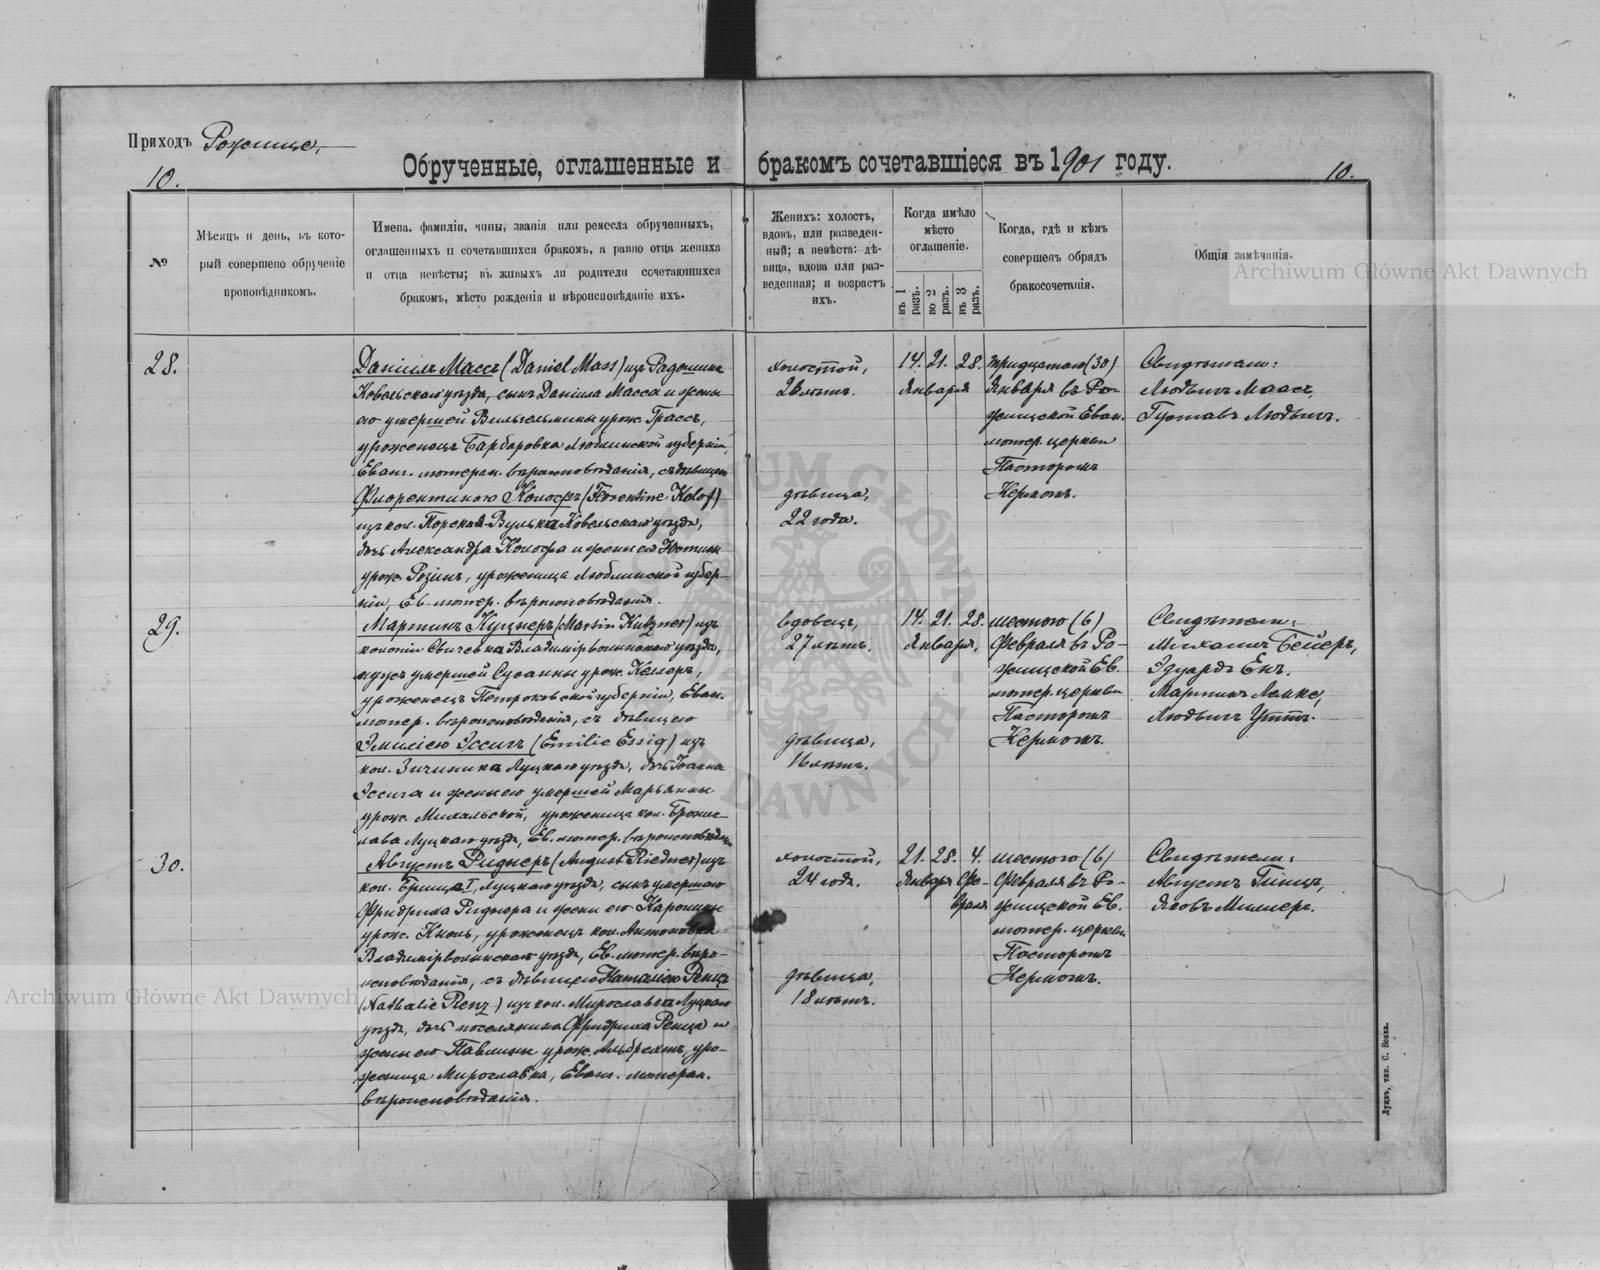 Приходъ Рожище.
10.
Обрученные, оглашенные и бракомъ сочетавшіеся въ 1901 году.
10.
№
Мѣсяцъ и день, въ кото-
рый совершено обрученіе
проповѣдникомъ.
Имена, фамиліи, чины, званія или ремесла обрученныхъ,
оглашенныхъ и сочетавшихся бракомъ, а равно отца жениха
и отца невѣсты; въ живыхъ ли родители сочетающихся
бракомъ, мѣсто рожденія и вѣроисповѣданіе ихъ.
Женихъ: холостъ,
вдовъ, или разведен-
ный; а невѣста: дѣ-
вица, вдова или раз-
веденная; и возрастъ
ихъ.
Когда имѣло
мѣсто
оглашеніе.
въ 1
разъ.
во 2
разъ.
въ 3
разъ.
Когда, гдѣ и кѣмъ
совершенъ обрядъ
бракосочетанія.
Общія замѣчанія.
28.
Даніилъ Массъ (Daniel Mass) изъ
Ковельскаго уѣзда, сынъ Даніила Масса и жены
его умершей Вильгельмины урож. Грассъ,
уроженецъ Барбаровка Люблинской губерніи,
Еванг. лютеран. вѣроисповѣданія, съ дѣвицею
Флорентиною Колофъ (Florentine Kolof)
изъ кол. Ковельскаго уѣзда,
дочь Александра Колофа и жены его
урож. уроженица Люблинской губер-
ніи, Ев. лютер. вѣроисповѣданія.
холостой,
26 лѣтъ.
дѣвица,
22 года.
14. 21. 28.
Января
тридцатаго (30)
Января въ Ро-
жищской Еван.
лютер. церкви
Пасторомъ
Керномъ.
Свидѣтели:
Людвигъ Маасъ,
Густавъ Людвигъ.
29.
Мартинъ Куцнеръ (Martin Kutzner) изъ
колоніи Владимірволынскаго уѣзда,
мужъ умершей Сусанны урож. Келлеръ,
уроженецъ Петроковской губерніи, Еван.
лютер. вѣроисповѣданія, съ дѣвицею
Эмиліею Эссигъ (Emilie Essig) изъ
кол. Луцкаго уѣзда, дочь Іоанна
Эссига и жены его умершей Марьянны
урож. Михальской, уроженица кол. Бронис-
лава Луцкаго уѣзда, Ев. лютер. вѣроисповѣданія
вдовецъ,
27 лѣтъ.
дѣвица,
16 лѣтъ.
14. 21. 28.
Января.
шестого (6)
Февраля въ Ро-
жищской Ев.
лютер. церкви
Пасторомъ
Керномъ.
Свидѣтели:
Михаилъ Бейеръ,
Эдуардъ Енъ.
Мартинъ Лемке,
Людвигъ Уттъ.
30.
Августъ Риднеръ (August Riedner) изъ
кол. Луцкаго уѣзда, сынъ умершаго
Фридриха Риднера и жены его Каролины
урож. Кноль, уроженецъ кол. Антоновка
Владимірволынскаго уѣзда, Ев. лютер. вѣро-
исповѣданія, съ дѣвицею Наталіею Ренцъ
(Nathalie Renz) изъ кол. Мирославка Луцкаго
уѣзда, дочь поселянина Фридриха Ренца и
жены его Павлины урож. Альбрехтъ, уро-
женица Мирославка, Еванг. лютеран.
вѣроисповѣданія.
холостой,
24 года.
дѣвица,
18 лѣтъ.
21. 28. 4.
Января Фе-
враля
шестого (6)
Февраля въ Ро-
жищской Ев.
лютер. церкви
Пасторомъ
Керномъ.
Свидѣтели:
Августъ Гинцъ,
Яковъ Миллеръ.
Луцкъ, тип. С. Бокка.
Archiwum Główne Akt Dawnych
Archiwum Główne Akt Dawnych